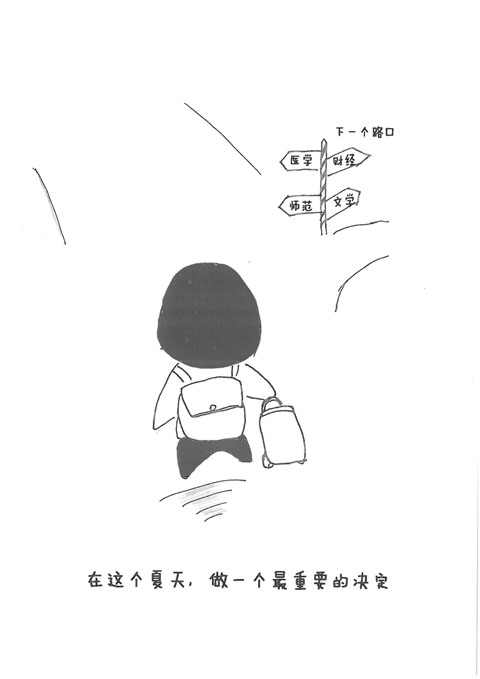 下一个路口
医学
财经
师范
文学
在这个夏天，做一个最重要的决定